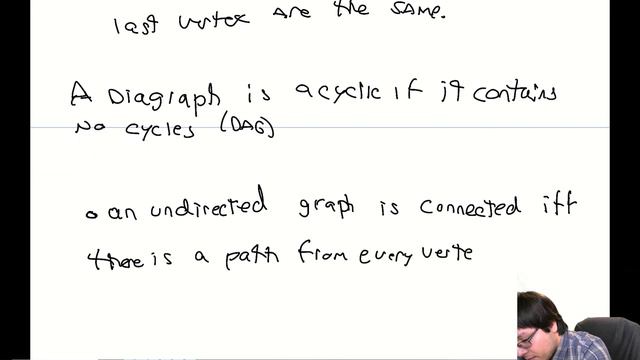 last vertex are the same.
A Diagraph is acyclic if it contains
no cycles (DAG)
an undirected graph is connected iff
there is a path from every verte